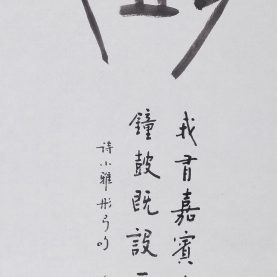 我有嘉賓
鐘鼓既設
诗小雅彤弓句